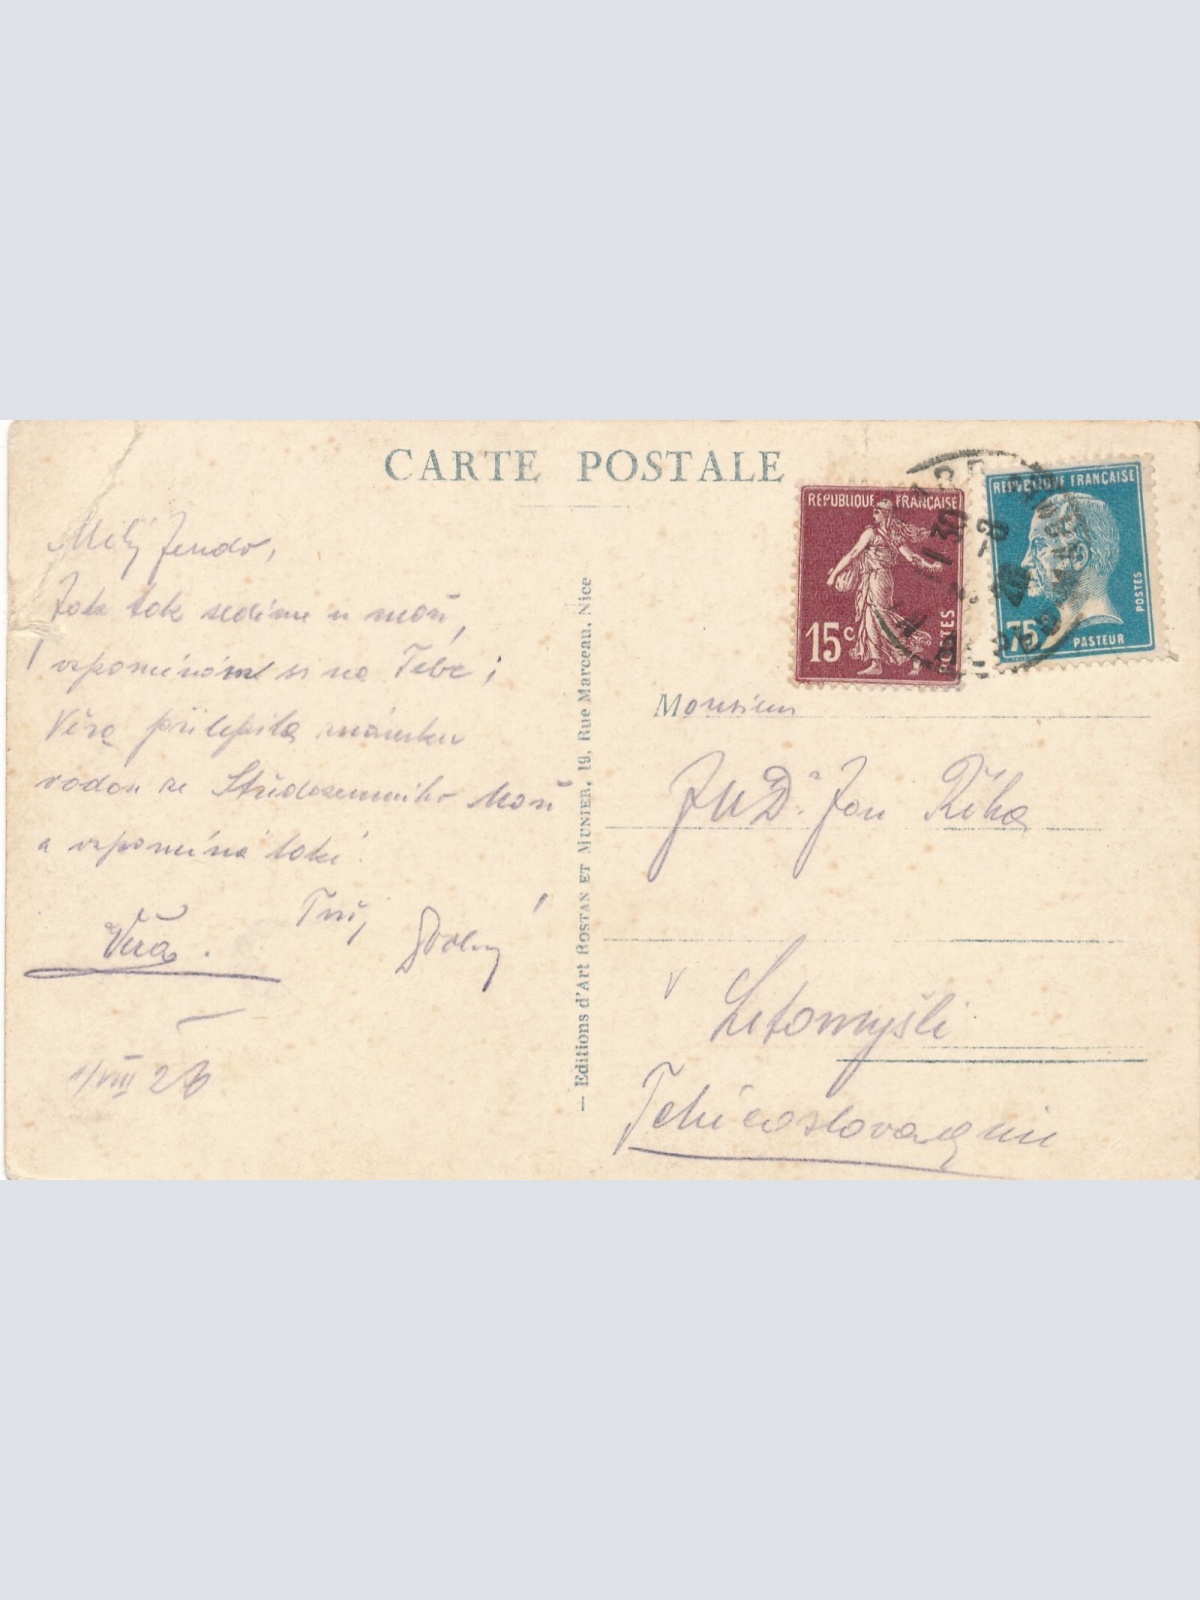 CARTE POSTALE
Milý Jendo,
Zde tak sedíme u moři,
vzpomínám si na Tebe i
Věra přilepila známku
vodou ze Středozemního Moři
a vzpomíná také
Tvůj
Věra.
1/VIII 26
— Editions d'Art ROSTAN ET MUNIER, 19, Rue Marceau, Nice
REPUBLIQUE FRANÇAISE
15c
POSTES
REPUBLIQUE FRANÇAISE
75c
POSTES
PASTEUR
Monsieur
JUDr. Jan Říha
v
Litomyšli
Tchécoslovaquie